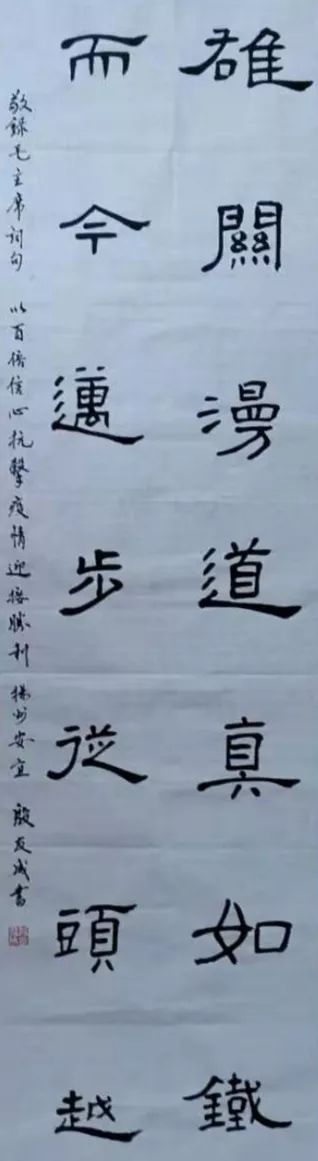 雄關漫道真如鐵
而今邁步從頭越
敬錄毛主席詞句 以百倍信心抗擊疫情迎接勝利 揚州安宜 殷友成書